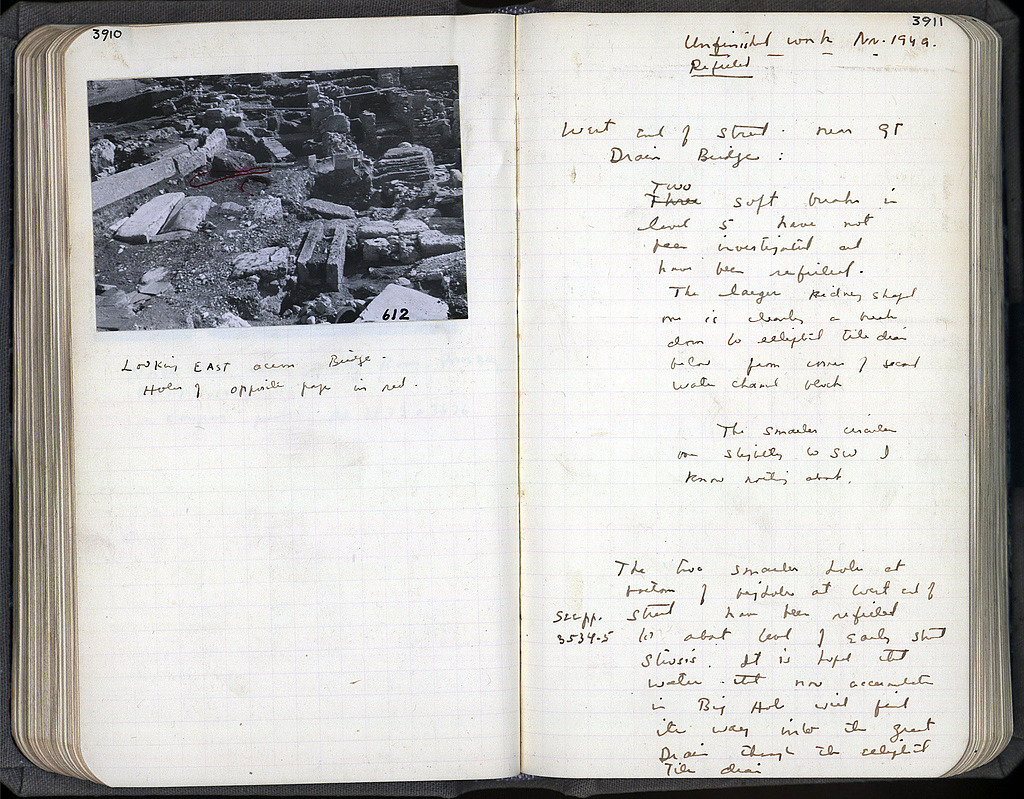 3910
612
Looking EAST across Bridge.
Holes of opposite page in red.
3911
Unfinished work Nov. 1949.
Refilled
West end of street. near GT
Drain Bridge:
Two
Three soft breaks in
level 5 have not
been investigated and
have been refilled.
The larger kidney shaped
one is clearly a break
down to elliptical tile drain
below from corner of second
water channel block
The smaller circular
one slightly to SW I
know nothing about.
The two smaller holes at
bottom of big hole at West end of
See pp. street have been refilled
3534-5 to about level of Early street
Stosis. It is hoped that
water that now accumulates
in Big Hole will find
its way into the great
Drain through the elliptical
Tile drain